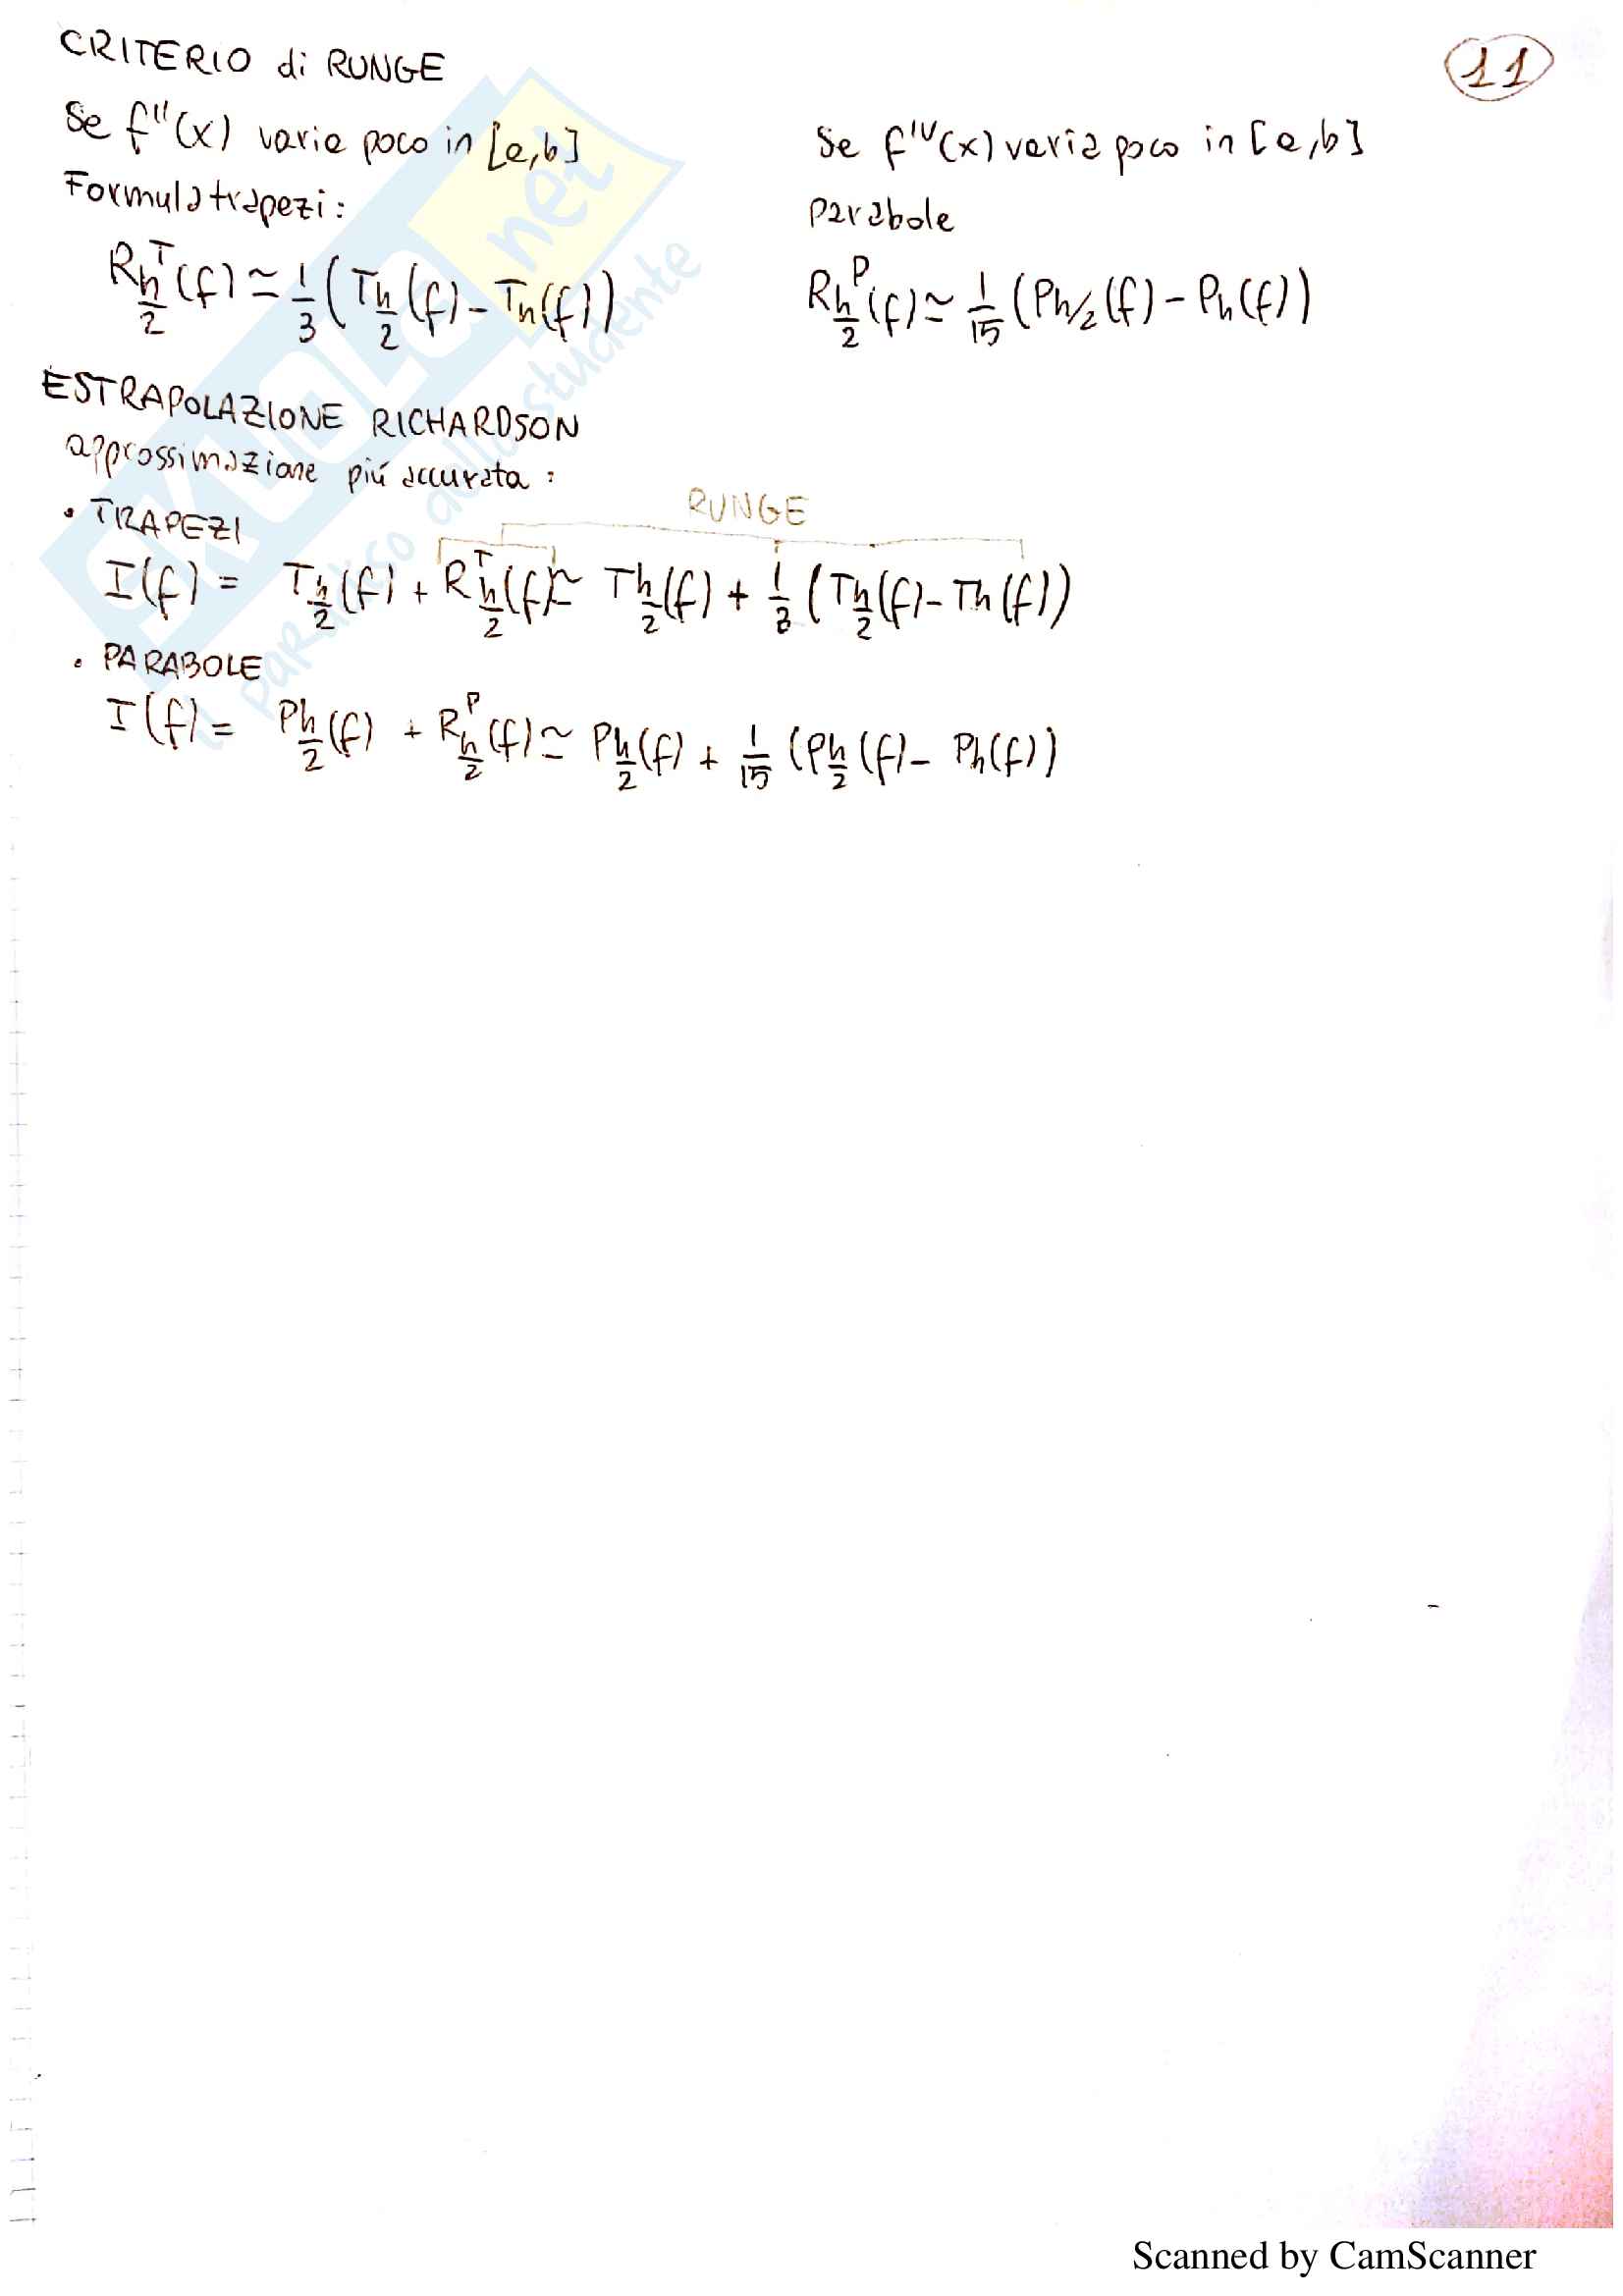 CRITERIO di RUNGE
11
Se f''(x) varia poco in [a,b]
Formula trapezi:
R^T_{h/2}(f) ≃ 1/3 (T_{h/2}(f) - T_h(f))
Se f^{IV}(x) varia poco in [a,b]
Parabole
R^P_{h/2}(f) ≃ 1/15 (P_{h/2}(f) - P_h(f))
ESTRAPOLAZIONE RICHARDSON
approssimazione più accurata:
• TRAPEZI
RUNGE
I(f) = T_{h/2}(f) + R^T_{h/2}(f) ≃ T_{h/2}(f) + 1/3 (T_{h/2}(f) - T_h(f))
• PARABOLE
I(f) = P_{h/2}(f) + R^P_{h/2}(f) ≃ P_{h/2}(f) + 1/15 (P_{h/2}(f) - P_h(f))
SKUOLA.net
il paradiso dello studente
Scanned by CamScanner